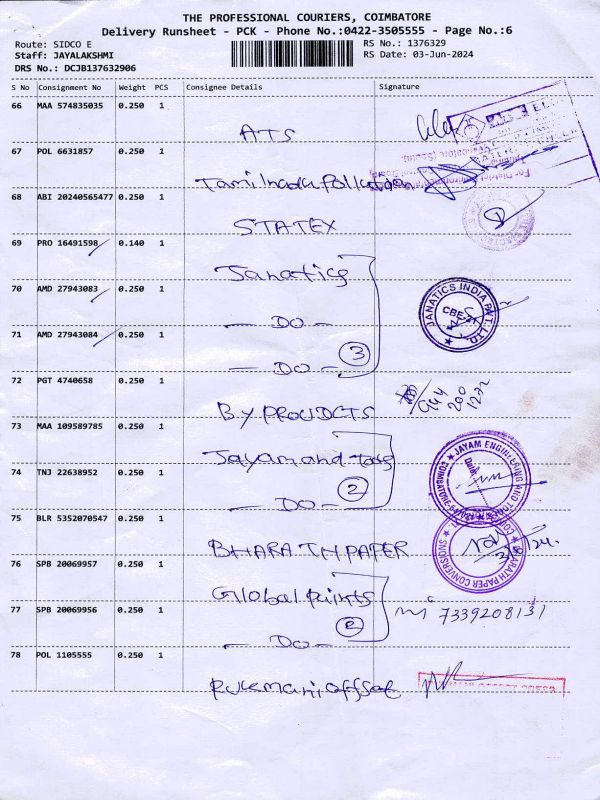 THE PROFESSIONAL COURIERS, COIMBATORE
Delivery Runsheet - PCK - Phone No.:0422-3505555 - Page No.:6
Route: SIDCO E RS No.: 1376329
Staff: JAYALAKSHMI RS Date: 03-Jun-2024
DRS No.: DCJB137632906
S No Consignment No Weight PCS Consignee Details Signature
66 MAA 574835035 0.250 1
ATS
67 POL 6631857 0.250 1
Tamilnadu Pollution
68 ABI 20240565477 0.250 1
STATEX
69 PRO 16491598 0.140 1
Janatics
70 AMD 27943083 0.250 1
- DO -
JANATICS INDIA PVT. LTD.
CBE-21
71 AMD 27943084 0.250 1
- DO - 3
72 PGT 4740658 0.250 1
BY PROUDCTS
944
200
1272
73 MAA 109589785 0.250 1
Jayam and
JAYAM ENGINEERING AND
74 TNJ 22638952 0.250 1
- DO - 2
75 BLR 5352070547 0.250 1
BHARATH PAPER
BHARATH PAPER CONVERSIONS
76 SPB 20069957 0.250 1
Global prints
7339208131
77 SPB 20069956 0.250 1
- DO -
78 POL 1105555 0.250 1
Rukmani offset